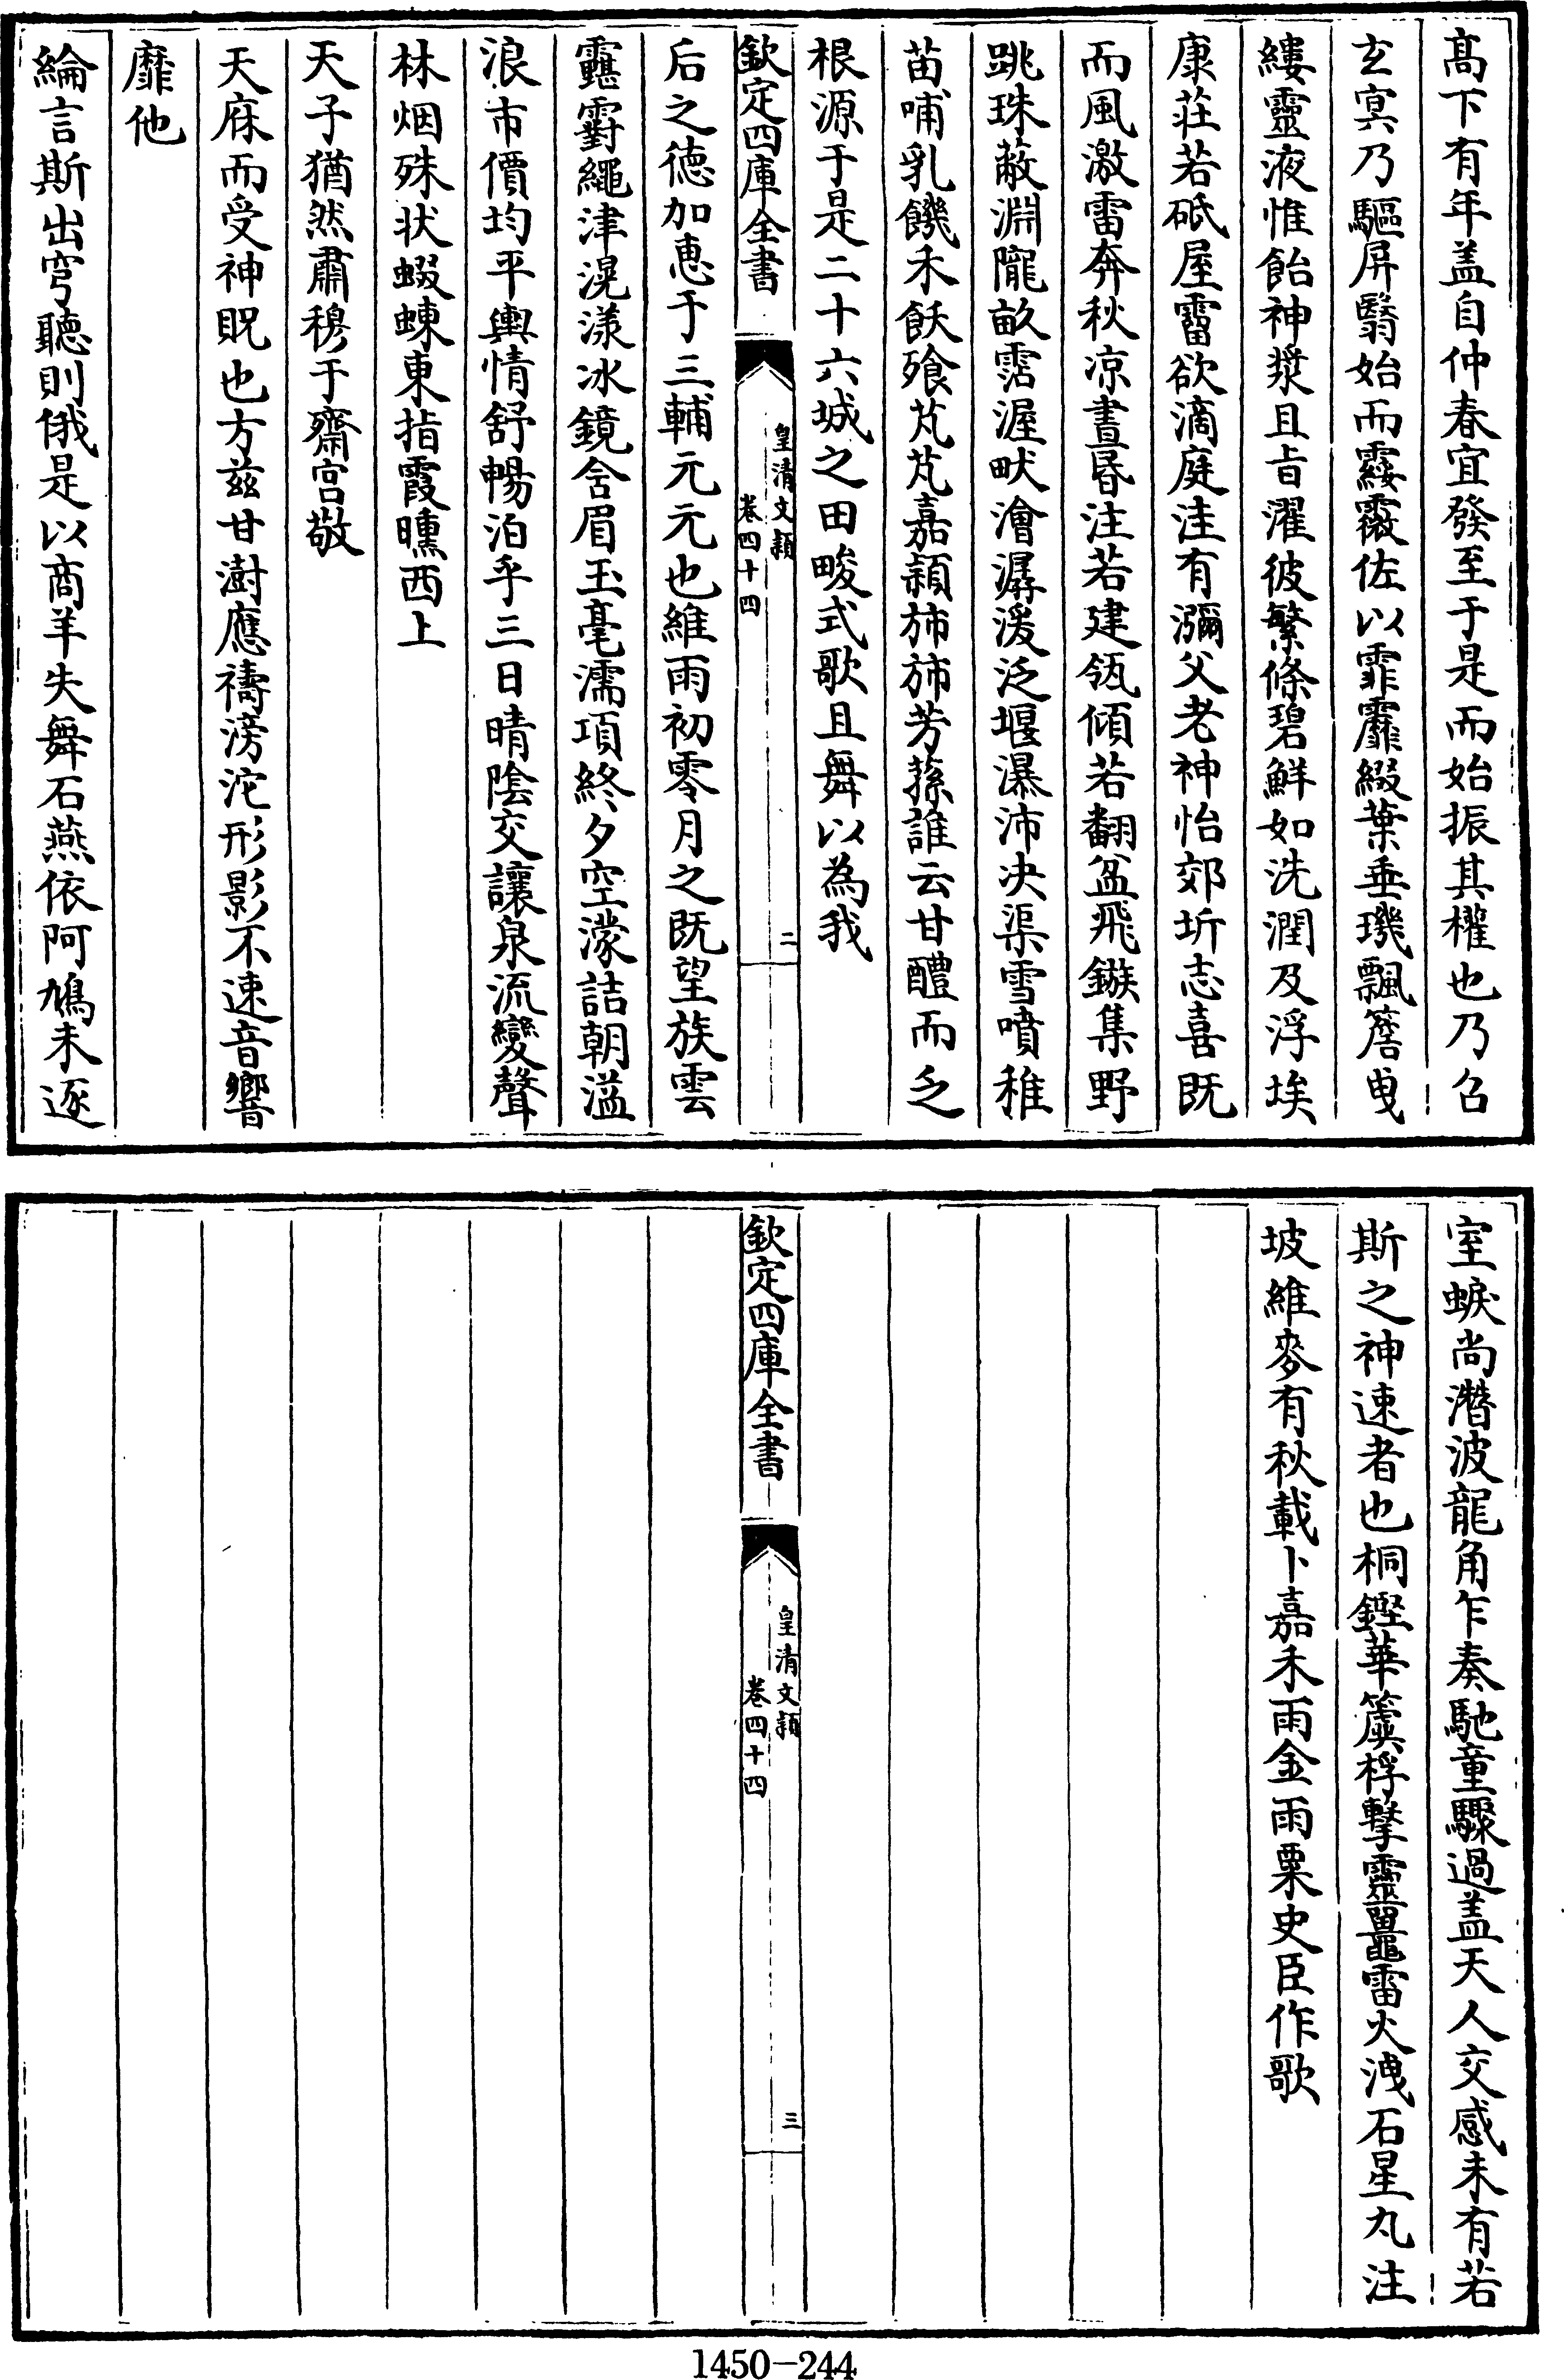 髙下有年盖自仲春宜發至于是而始振其權也乃召
玄冥乃驅屏翳始而霢霂佐以霏靡綴葉垂璣飄簷曳
縷靈液惟飴神漿且旨濯彼繁條碧鮮如洗潤及浮埃
康莊若砥屋霤欲滴庭洼有瀰父老神怡郊圻志喜既
而風激雷奔秋凉晝昬注若建瓴傾若翻盆飛鏃集野
跳珠蔽淵隴畝霑渥畎澮潺湲泛堰瀑沛决渠雪噴稚
苗哺乳饑禾飫飱芃芃嘉頴斾斾芳蓀誰云甘醴而乏
根源于是二十六城之田畯式歌且舞以為我
欽定四庫全書
皇清文穎
卷四十四
二
后之徳加惠于三輔元元也維雨初零月之既望族雲
靉霴繩津滉漾冰鏡含眉玉毫濡項終夕空濛詰朝溢
浪市價均平輿情舒暢洎乎三日晴陰交讓泉流變聲
林烟殊状蝃蝀東指霞曛西上
天子猶然肅穆于齋宫敬
天庥而受神貺也方兹甘澍應禱滂沱形影不速音響
靡他
綸言斯出穹聽則俄是以商羊失舞石燕依阿鳩未逐
室蜧尚潛波龍角乍奏馳童驟過盖天人交感未有若
斯之神速者也桐鏗華簴桴擊靈鼉雷火洩石星丸注
坡維麥有秋載卜嘉禾雨金雨粟史臣作歌
欽定四庫全書
皇清文穎
卷四十四
三
1450-244